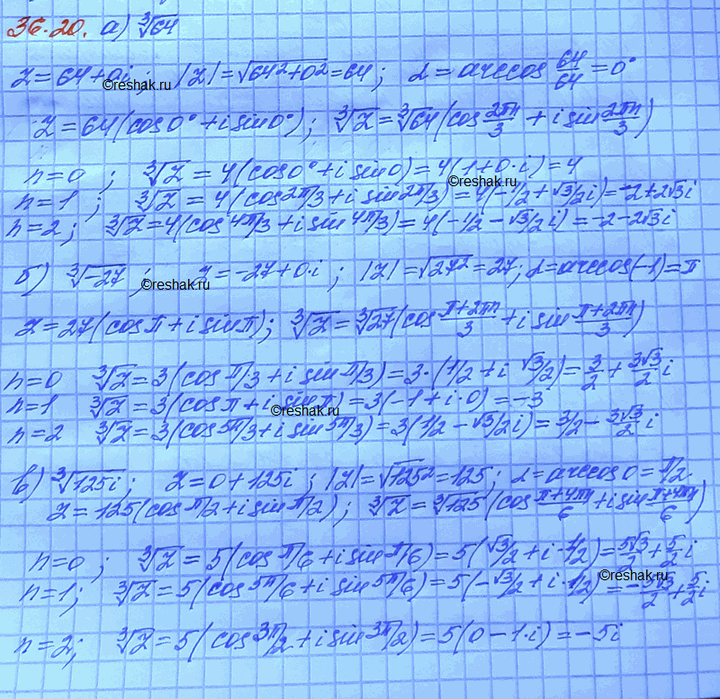 36.20. а) ∛64
z=64+0i ; |z|=√64²+0²=64; α=arccos 64/64=0°
©reshak.ru
z=64(cos0°+i sin0°); ∛z=∛64(cos 2πn/3 + i sin 2πn/3)
n=0 ; ∛z = 4(cos0°+i sin0)=4(1+0·i)=4
©reshak.ru
n=1 ; ∛z = 4(cos2π/3+i sin2π/3)=4(-1/2+√3/2i)=-2+2√3i
n=2; ∛z=4(cos4π/3+i sin4π/3)=4(-1/2-√3/2i)=-2-2√3i
б) ∛-27 ; z=-27+0·i ; |z|=√27²=27; α=arccos(-1)=π
©reshak.ru
z=27(cosπ+i sinπ); ∛z=∛27(cos π+2πn/3 + i sin π+2πn/3)
n=0 ∛z=3(cosπ/3+i sinπ/3)=3·(1/2+i √3/2)=3/2+3√3/2 i
n=1 ∛z=3(cosπ+i sinπ)=3(-1+i·0)=-3
©reshak.ru
n=2 ∛z=3(cos5π/3+i sin5π/3)=3(1/2-√3/2i)=3/2-3√3/2 i
в) ∛125i; z=0+125i ; |z|=√125²=125; α=arccos0=π/2.
z=125(cosπ/2+i sinπ/2); ∛z=∛125(cos π+4πn/6+i sin π+4πn/6)
n=0; ∛z=5(cosπ/6+i sinπ/6)=5(√3/2+i·1/2)=5√3/2+5/2 i
n=1; ∛z=5(cos5π/6+i sin5π/6)=5(-√3/2+i·1/2)=-5√3/2+5/2i
©reshak.ru
n=2; ∛z=5(cos3π/2+i sin3π/2)=5(0-1·i)=-5i